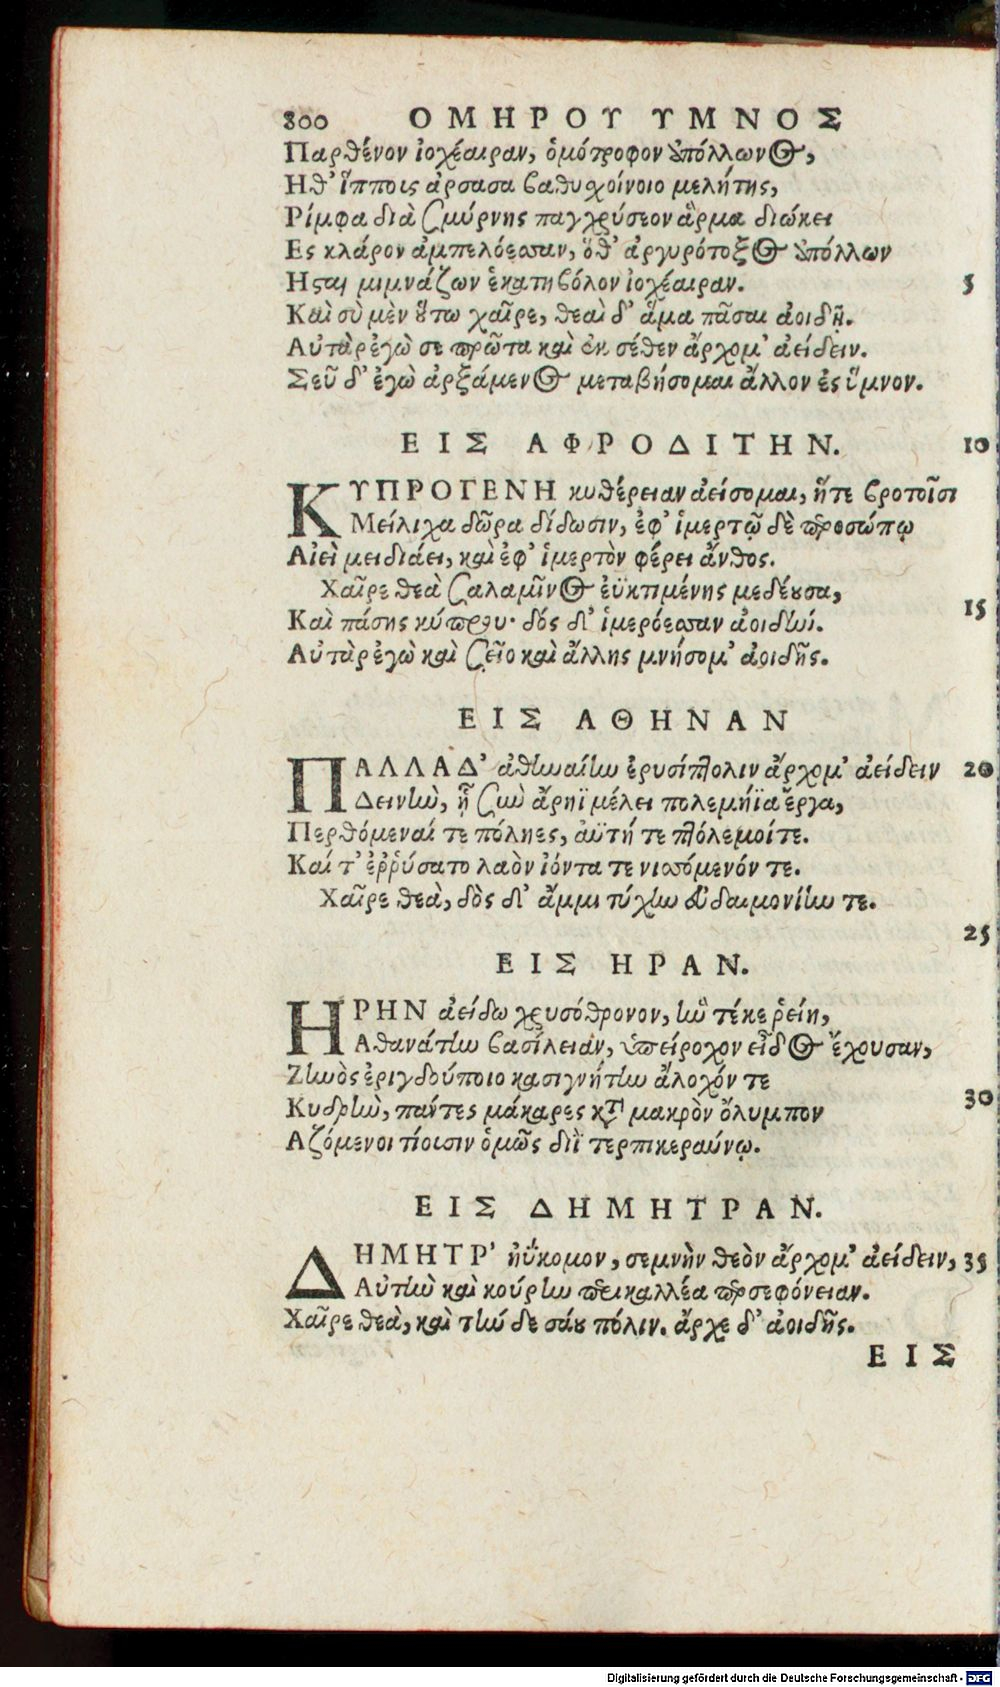 800 ΟΜΗΡΟΥ ΥΜΝΟΣ
Παρθένον ἰοχέαιραν, ὁμότροφον Ἀπόλλωνος,
Ηθ' ἵπποις ἄρσασα βαθυχοίνοιο μελήτης,
Ρίμφα διὰ Σμύρνης παγχρύσεον ἅρμα διώκει
Ες κλάρον ἀμπελόεσσαν, ὅθ' ἀργυρότοξος Ἀπόλλων
Ηςαι μιμνάζων ἑκατηβόλον ἰοχέαιραν. 5
Καὶ σὺ μὲν οὕτω χαῖρε, θεαὶ δ' ἅμα πᾶσαι ἀοιδῇ.
Αὐτὰρ ἐγὼ σε πρῶτα καὶ ἐκ σέθεν ἄρχομ' ἀείδειν.
Σεῦ δ' ἐγὼ ἀρξάμενος μεταβήσομαι ἄλλον ἐς ὕμνον.
ΕΙΣ ΑΦΡΟΔΙΤΗΝ. 10
ΚΥΠΡΟΓΕΝΗ κυθέρειαν ἀείσομαι, ἥτε βροτοῖσι
Μείλιχα δῶρα δίδωσιν, ἐφ' ἱμερτῷ δὲ προσώπῳ
Αἰεὶ μειδιάει, καὶ ἐφ' ἱμερτὸν φέρει ἄνθος.
Χαῖρε θεὰ Σαλαμῖνος ἐϋκτιμένης μεδέουσα,
Καὶ πάσης κύπρου· δός δ' ἱμερόεσσαν ἀοιδήν. 15
Αὐτὰρ ἐγὼ καὶ σεῖο καὶ ἄλλης μνήσομ' ἀοιδῆς.
ΕΙΣ ΑΘΗΝΑΝ
ΠΑΛΛΑΔ' ἀθηναίην ἐρυσίπτολιν ἄρχομ' ἀείδειν 20
Δεινὴν, ᾗ σὺν ἄρηϊ μέλει πολεμήϊα ἔργα,
Περθόμεναί τε πόληες, ἀϋτή τε πτόλεμοί τε.
Καί τ' ἐῤῥύσατο λαὸν ἰόντα τε νισσόμενόν τε.
Χαῖρε θεὰ, δὸς δ' ἄμμι τύχην εὐδαιμονίην τε.
25
ΕΙΣ ΗΡΑΝ.
ΗΡΗΝ ἀείδω χρυσόθρονον, ἣν τέκε ῥείη,
Αθανάτην βασίλειαν, ὑπείροχον εἶδος ἔχουσαν,
Ζηνὸς ἐριγδούποιο κασιγνήτην ἄλοχόν τε
Κυδρὴν, πάντες μάκαρες κατὰ μακρὸν ὄλυμπον 30
Αζόμενοι τίουσιν ὁμῶς διῒ τερπικεραύνῳ.
ΕΙΣ ΔΗΜΗΤΡΑΝ.
ΔΗΜΗΤΡ' ἠΰκομον, σεμνὴν θεὸν ἄρχομ' ἀείδειν, 35
Αὐτὴν καὶ κούρην περικαλλέα περσεφόνειαν.
Χαῖρε θεὰ, καὶ τήν δε σάου πόλιν. ἄρχε δ' ἀοιδῆς.
ΕΙΣ
Digitalisierung gefördert durch die Deutsche Forschungsgemeinschaft - DFG